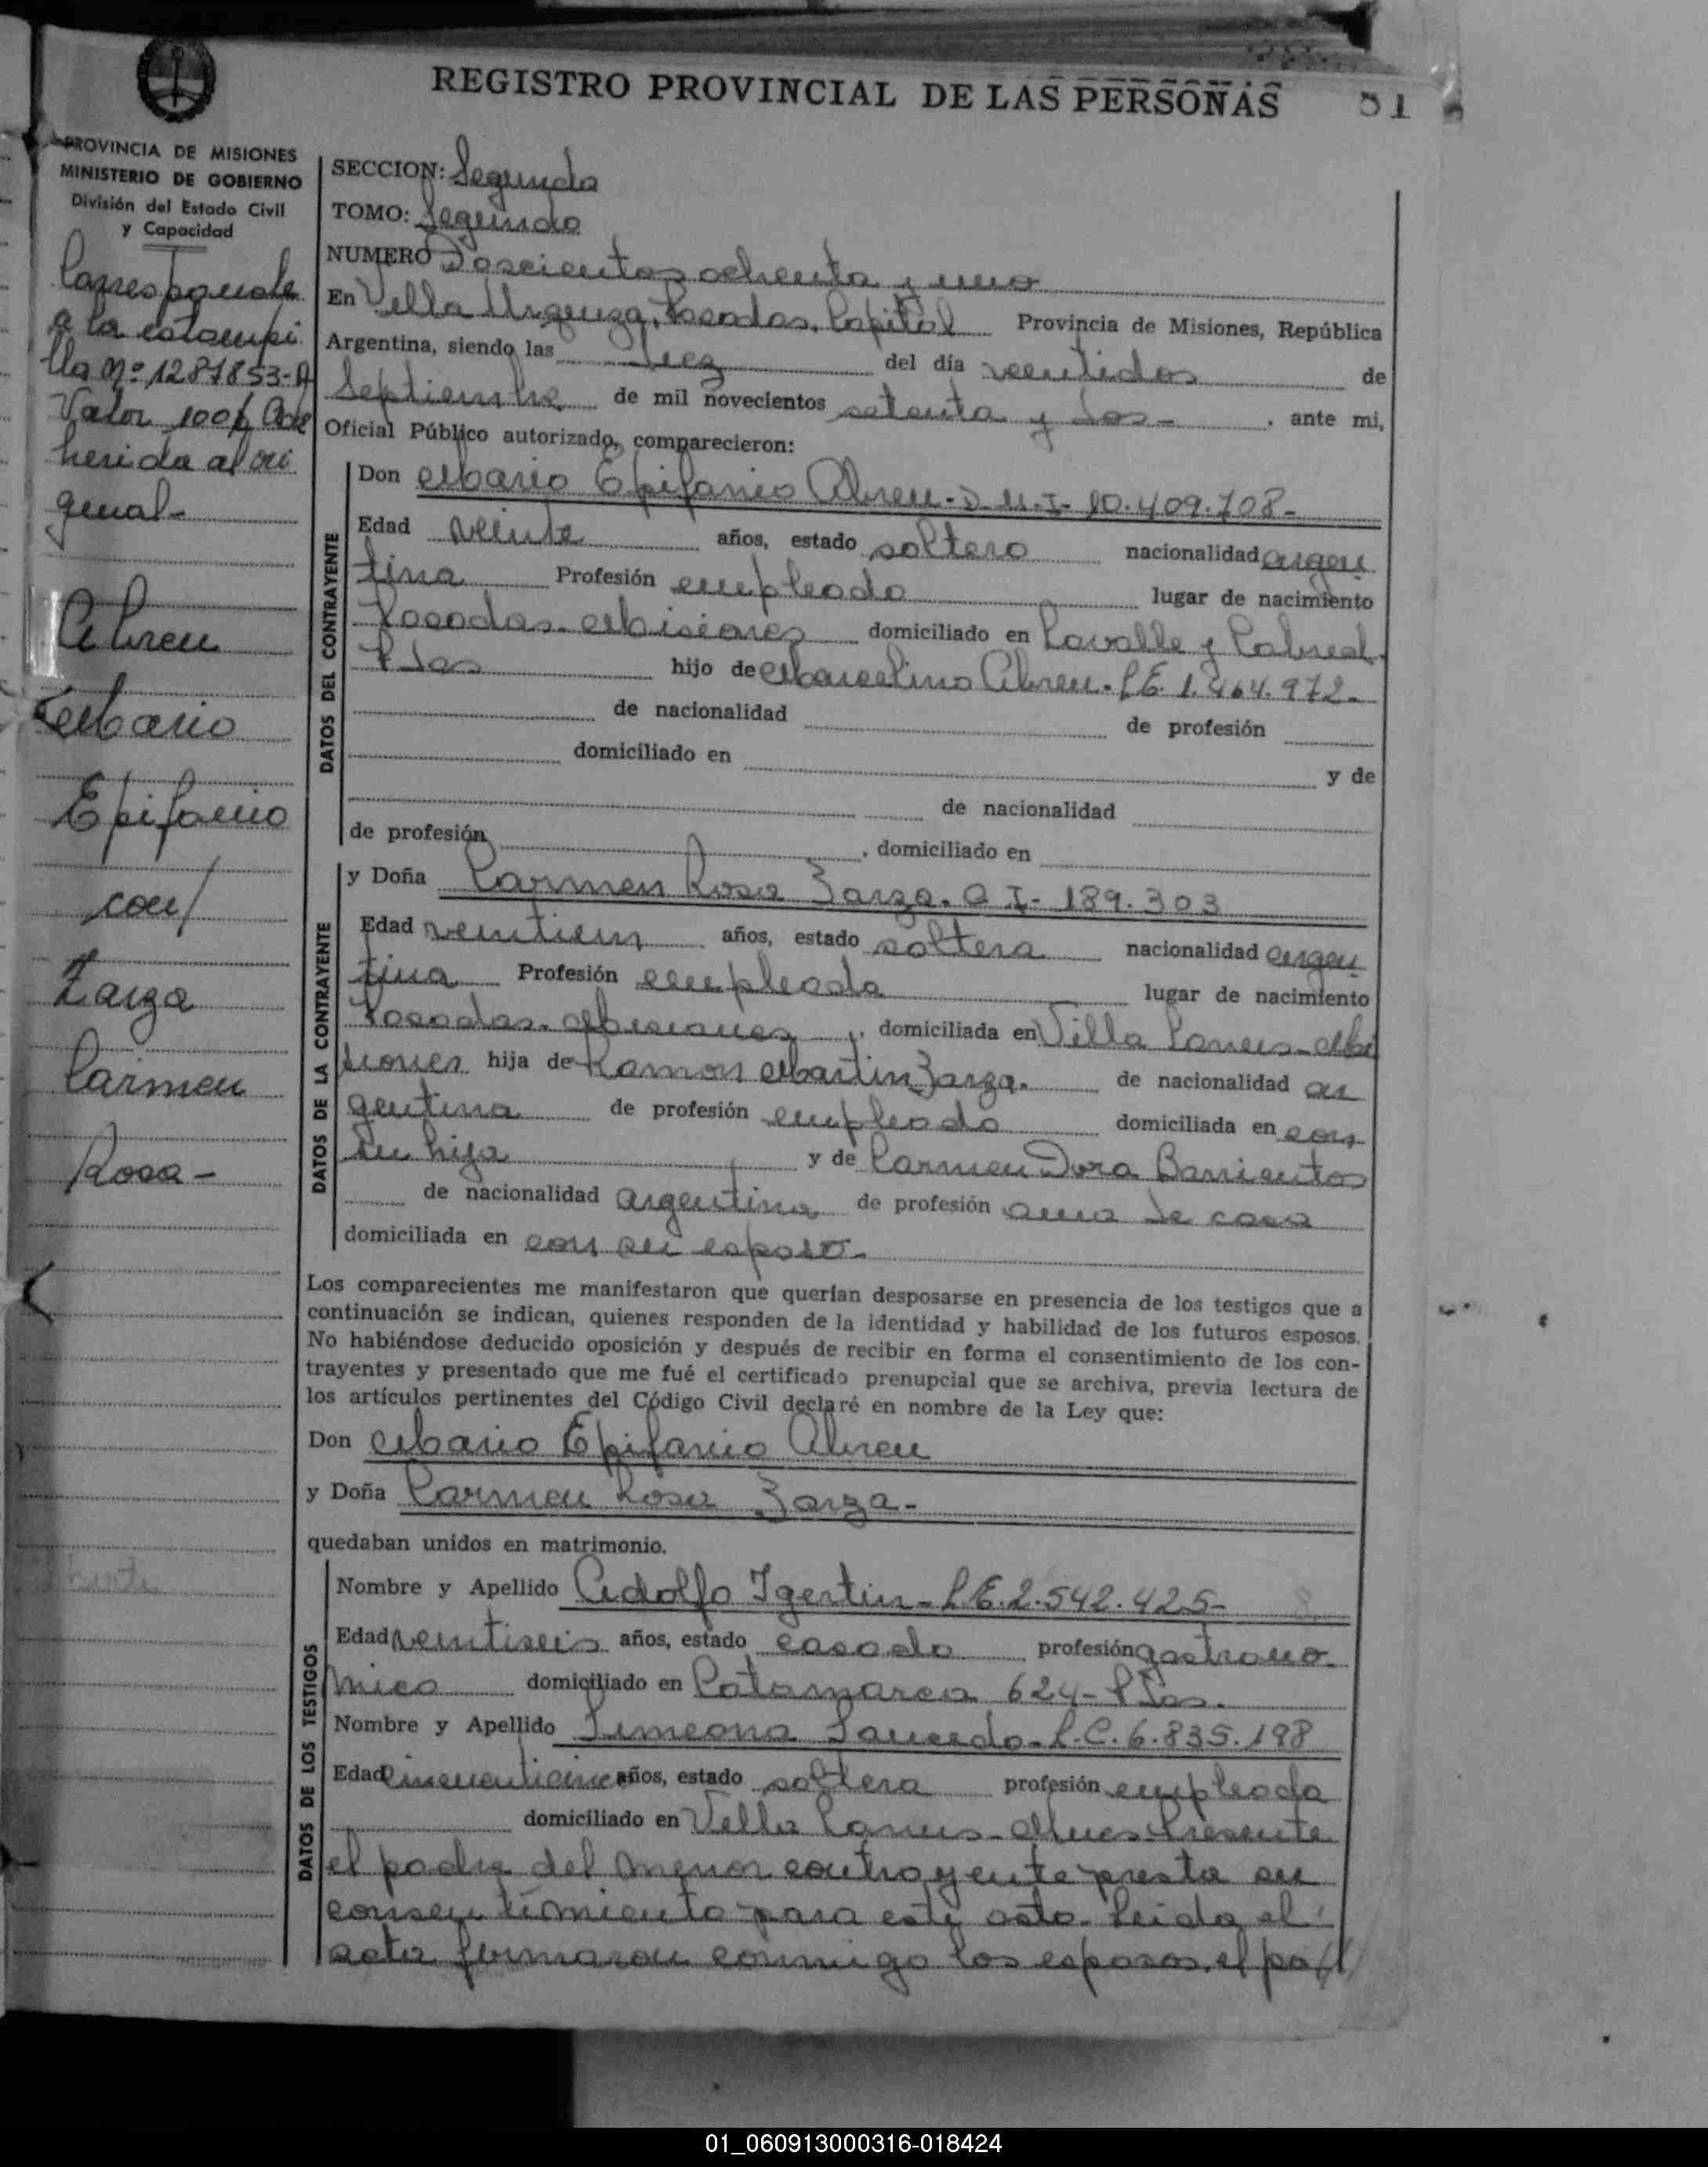 REGISTRO PROVINCIAL DE LAS PERSONAS 51
PROVINCIA DE MISIONES
MINISTERIO DE GOBIERNO
División del Estado Civil
y Capacidad
Corresponde
a la estampi
lla Nº 1287853-A
Valor 100 \$ Ad
herida al ori
ginal-
Abreu
Mario
Epifanio
con/
Zarza
Carmen
Rosa-
SECCION: Segunda
TOMO: Segundo
NUMERO Doscientos ochenta y uno
En Villa Urquiza, Posadas, Capital Provincia de Misiones, República
Argentina, siendo las diez del día veintidos de
Septiembre de mil novecientos setenta y dos- , ante mi,
Oficial Público autorizado, comparecieron:
DATOS DEL CONTRAYENTE
Don Mario Epifanio Abreu-D.N.I- 10.409.708-
Edad veinte años, estado soltero nacionalidad argen
tina Profesión empleado lugar de nacimiento
Posadas-Misiones domiciliado en Lavalle y Cabred.
Pdas hijo de Marcelino Abreu-L.E. 1.464.972-
de nacionalidad de profesión
domiciliado en y de
de nacionalidad
de profesión , domiciliado en
DATOS DE LA CONTRAYENTE
y Doña Carmen Rosa Zarza. C I- 189.303
Edad veintiun años, estado soltera nacionalidad argen
tina Profesión empleada lugar de nacimiento
Posadas-Misiones , domiciliada en Villa Lanus-Mi
siones hija de Ramon Martin Zarza. de nacionalidad ar
gentina de profesión empleado domiciliada en con
su hija y de Carmen Dora Barrientos
de nacionalidad argentina de profesión ama de casa
domiciliada en con su esposo-
Los comparecientes me manifestaron que querían desposarse en presencia de los testigos que a
continuación se indican, quienes responden de la identidad y habilidad de los futuros esposos.
No habiéndose deducido oposición y después de recibir en forma el consentimiento de los con-
trayentes y presentado que me fué el certificado prenupcial que se archiva, previa lectura de
los artículos pertinentes del Código Civil declaré en nombre de la Ley que:
Don Mario Epifanio Abreu
y Doña Carmen Rosa Zarza-
quedaban unidos en matrimonio.
DATOS DE LOS TESTIGOS
Nombre y Apellido Adolfo Igertin-L.E. 2.542.425-
Edad veintiseis años, estado casado profesión gastrono
mico domiciliado en Catamarca 624-Pdas.
Nombre y Apellido Simeona Saucedo-L.C. 6.835.198
Edad años, estado soltera profesión empleada
domiciliado en Villa Lanus-Mnes Presente
el padre del menor contrayente presta su
consentimiento para este acto. Leida el
acta firmaron conmigo los esposos, el pa//
01_060913000316-018424